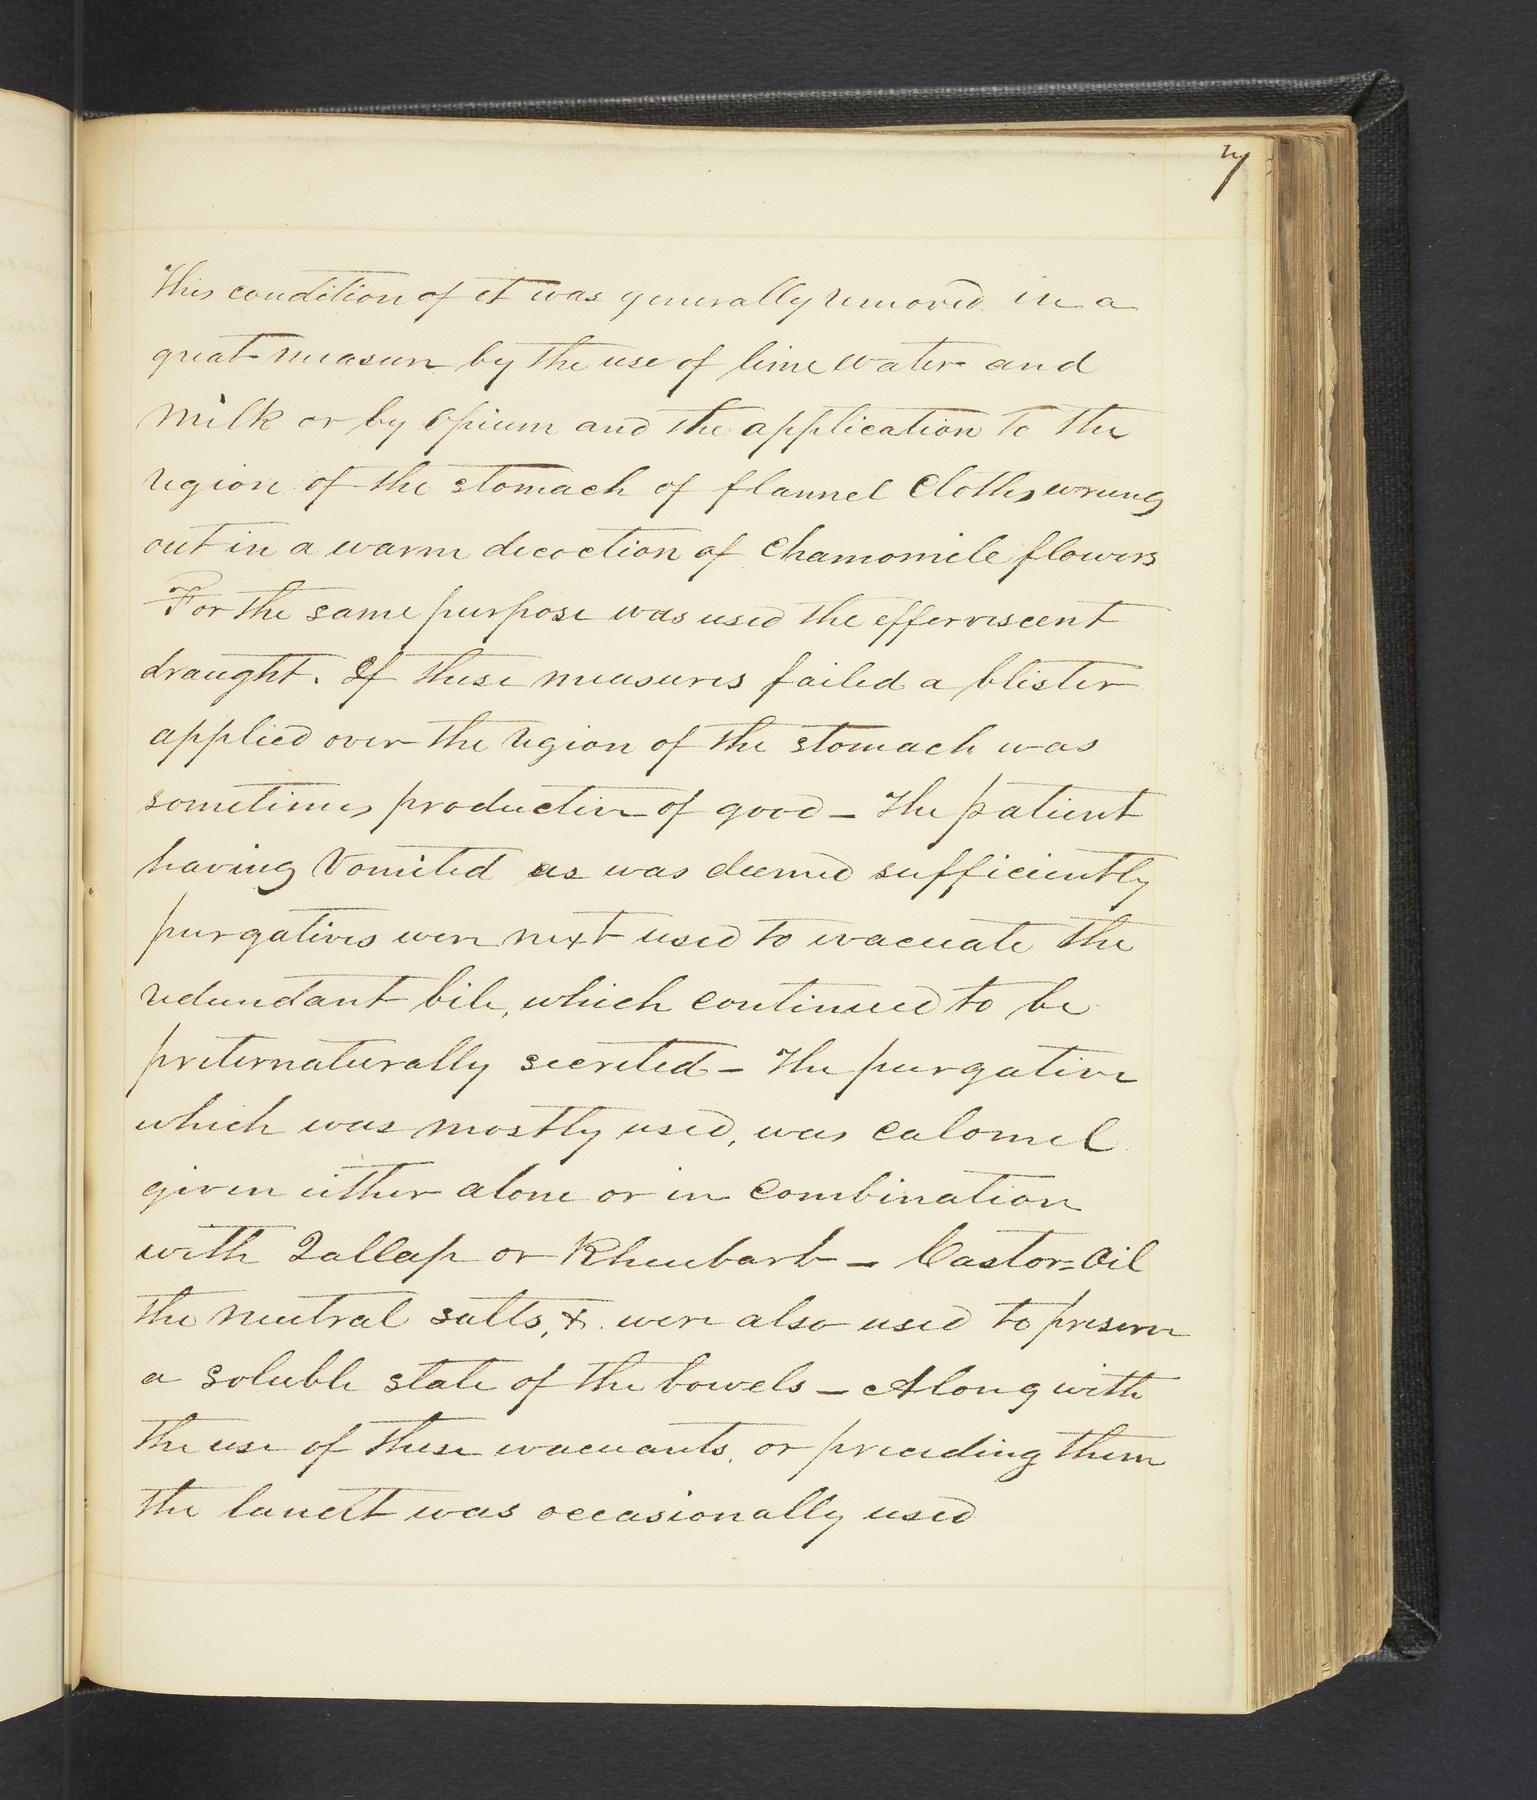 7
This condition of it was generally removed in a
great measure by the use of lime water and
Milk or by Opium and the application to the
region of the stomach of flannel Cloths wrung
out in a warm decoction of Chamomile flowers
For the same purpose was used the effervescent
draught. If these measures failed a blister
applied over the region of the stomach was
sometimes productive of good – The patient
having Vomited as was deemed sufficiently
purgatives were next used to evacuate the
redundant bile, which continued to be
preternaturally secreted – The purgative
which was mostly used, was Calomel
given either alone or in Combination
with Jallap or Rheubarb – Castor=Oil
the neutral salts, &. were also used to preserve
a soluble state of the bowels – Along with
the use of these evacuants, or preceding them
the lancet was occasionally used